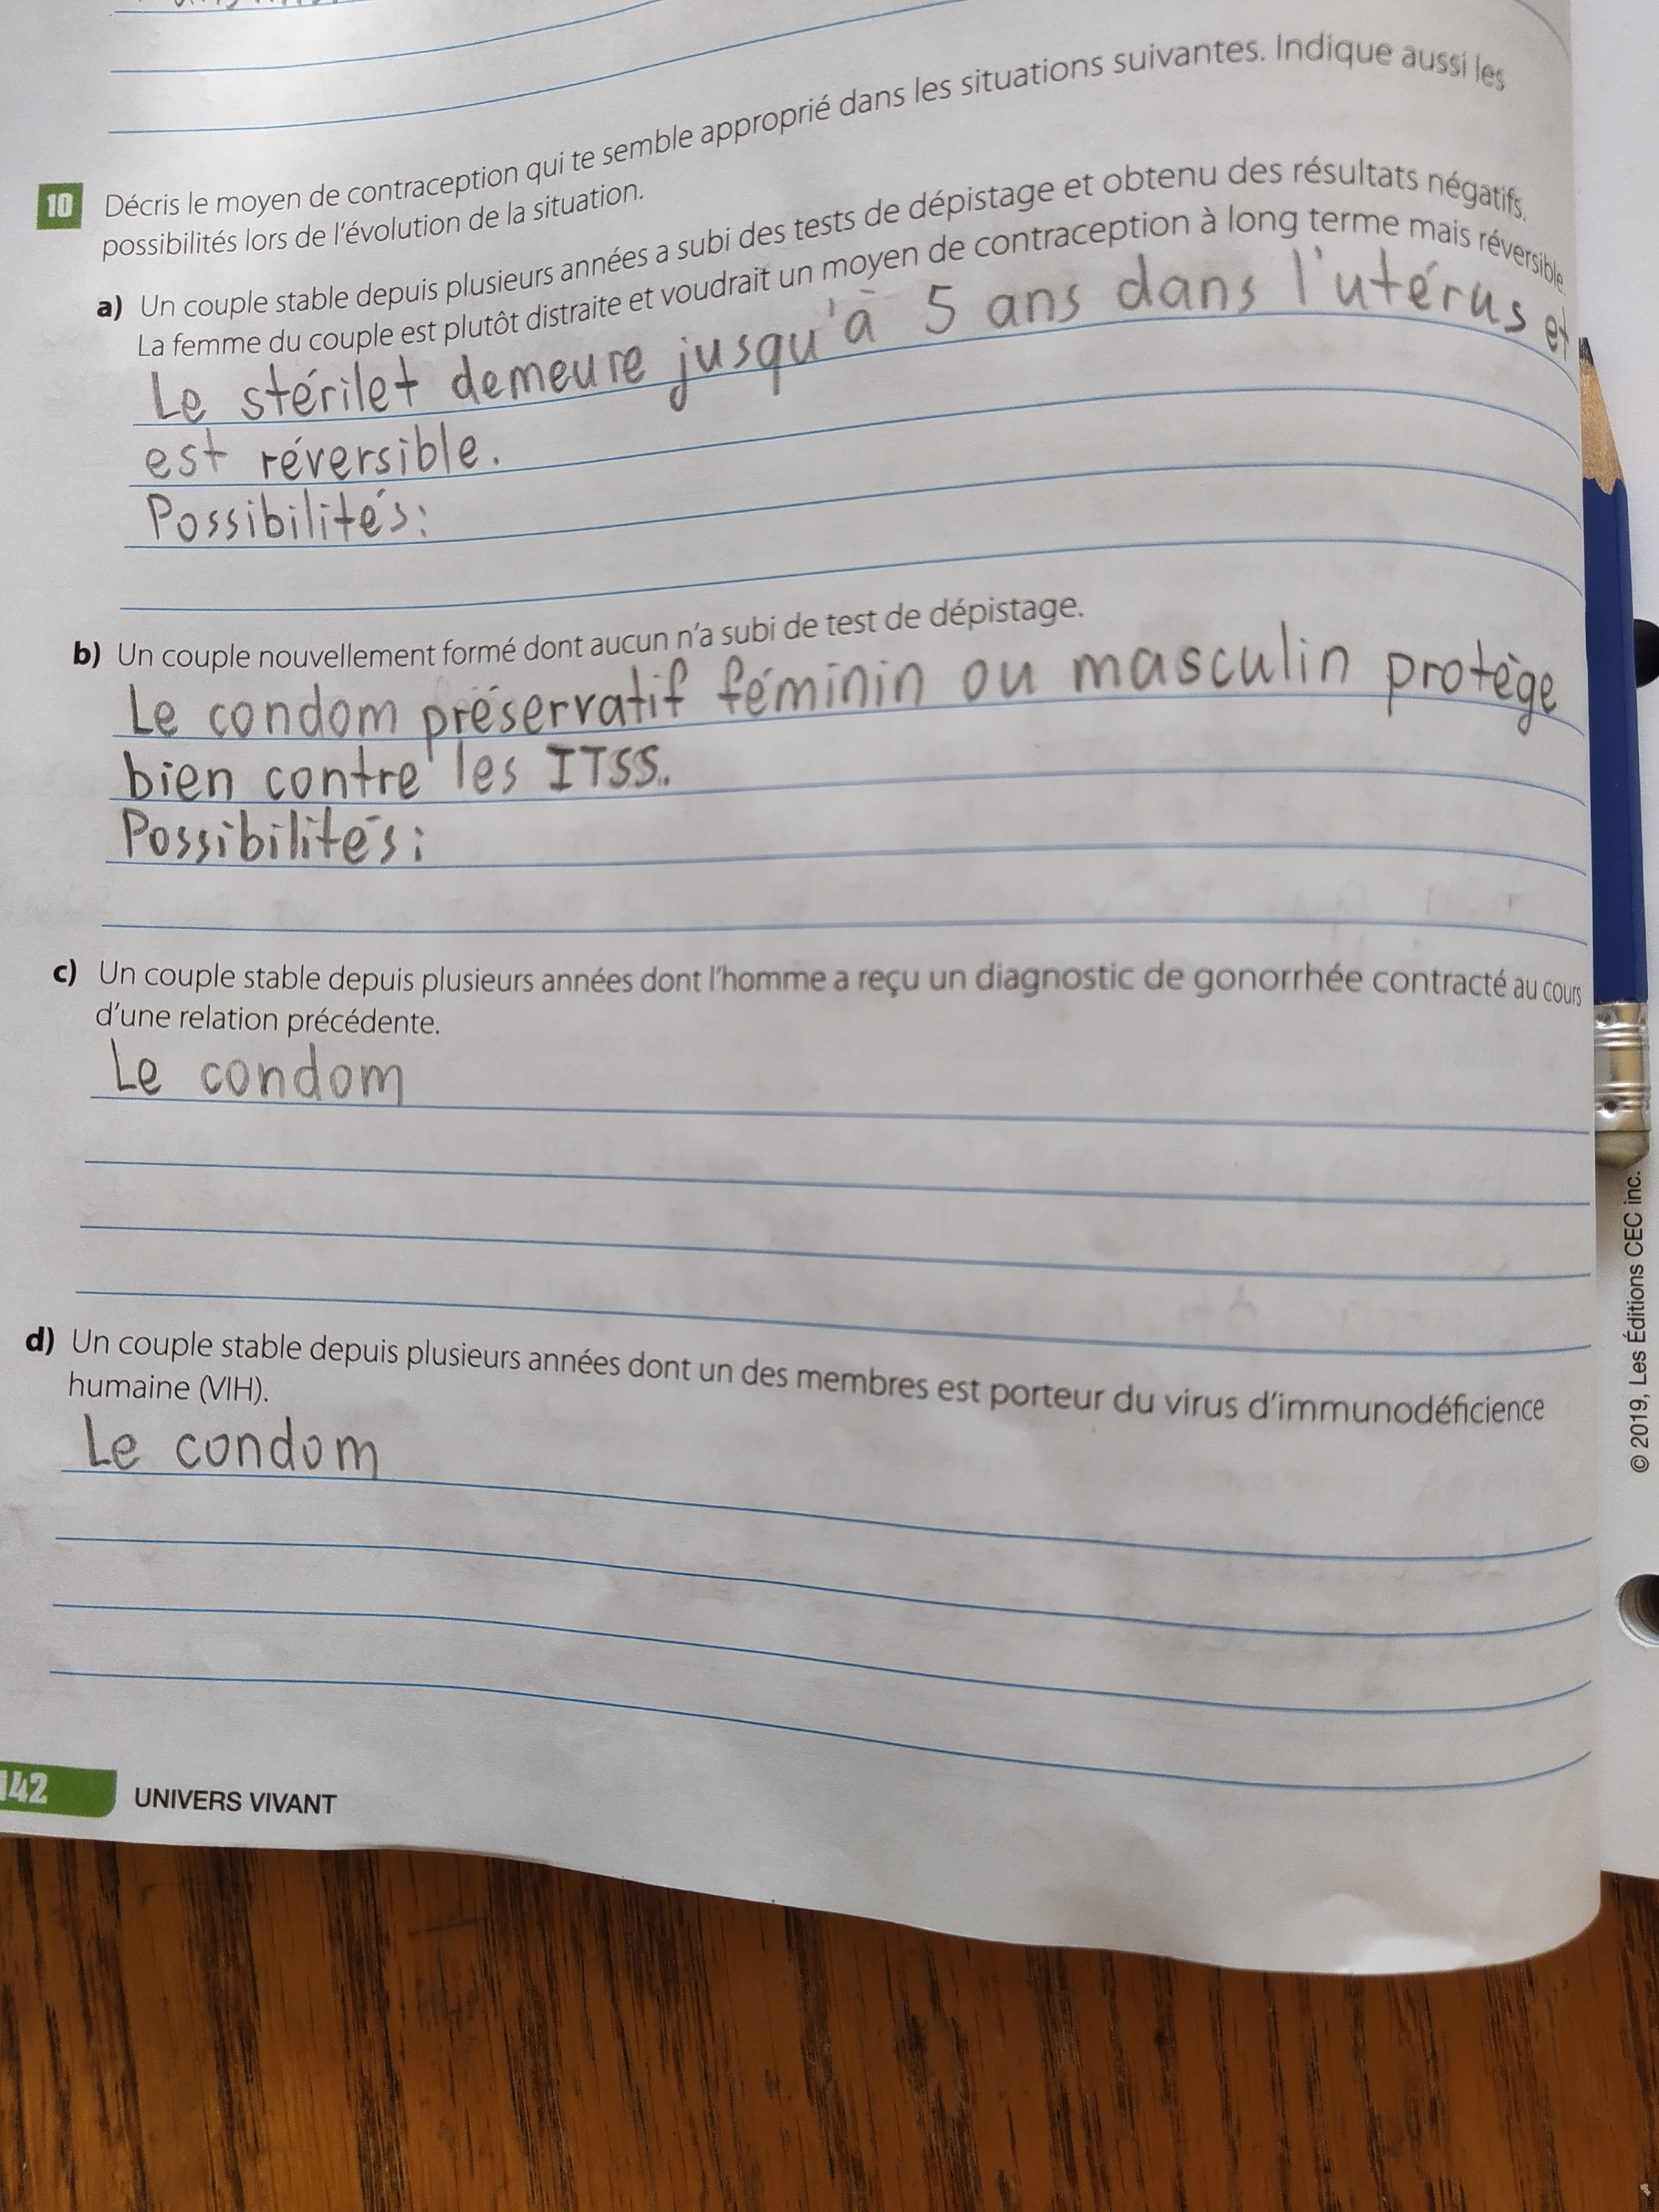 10 Décris le moyen de contraception qui te semble approprié dans les situations suivantes. Indique aussi les
possibilités lors de l'évolution de la situation.
a) Un couple stable depuis plusieurs années a subi des tests de dépistage et obtenu des résultats négatifs.
La femme du couple est plutôt distraite et voudrait un moyen de contraception à long terme mais réversible.
Le stérilet demeure jusqu'à 5 ans dans l'utérus et
est réversible.
Possibilités:
b) Un couple nouvellement formé dont aucun n'a subi de test de dépistage.
Le condom préservatif féminin ou masculin protège
bien contre les ITSS.
Possibilités:
c) Un couple stable depuis plusieurs années dont l'homme a reçu un diagnostic de gonorrhée contracté au cours
d'une relation précédente.
Le condom
d) Un couple stable depuis plusieurs années dont un des membres est porteur du virus d'immunodéficience
humaine (VIH).
Le condom
142 UNIVERS VIVANT
© 2019, Les Éditions CEC inc.